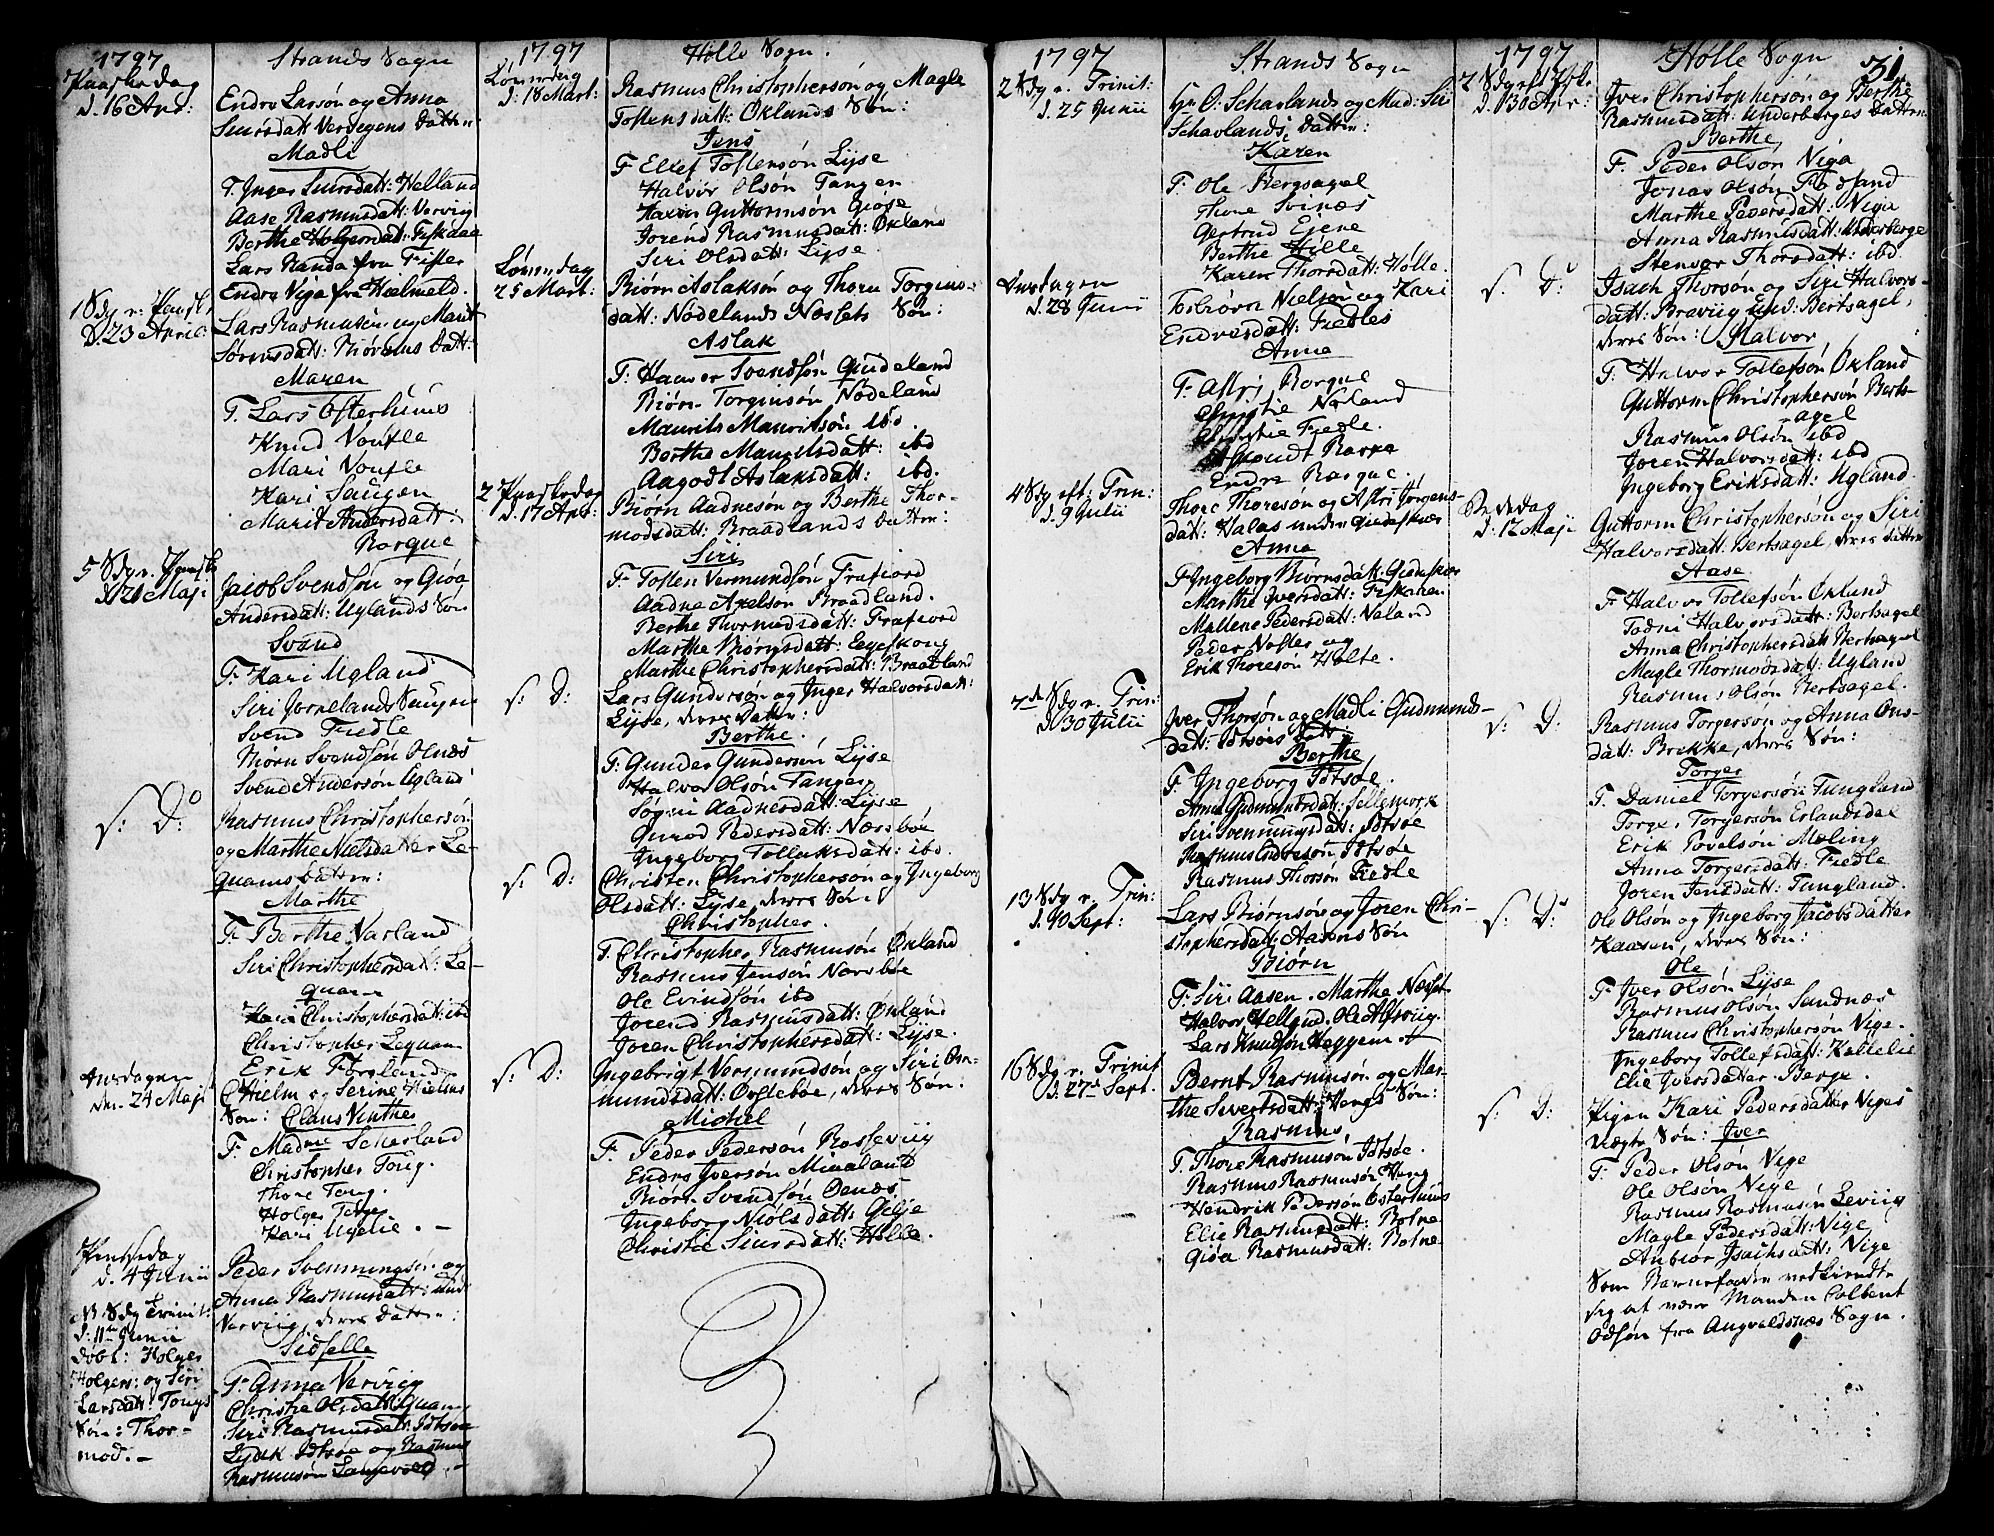 1797
Strands Sogn
Paaskedag
d. 16 Apr:
Endre Larsøn og Anna
Siursdatt: Vervigens Datter
Madli
F. Inger Siursdatt: Helland
Aase Rasmusdatt: Vervig
Berthe Holgersdatt: Fiskaae
Lars Randa fra Fister
Endre Viga fra Hielmeld.
1 Sdg p. Paask.
d. 23 April
Lars Rasmusen og Marit
Sørensdatt: Biørems Datt:
Maren
F. Lars Osterhuus
Knud Voufle
Mari Voufle
Kari Saugen
Marit Andersdatt:
Barque
5 Sdg p. Paaske
d. 21 Maj:
Jacob Svendsøn og Giøa
Andersdatt: Uglands Søn
Svend
F. Kari Ugland
Siri Jørnelands Saugen
Svend Fiedle
Biørn Svendsøn Olnæs
Svend Andersøn Ugland
s: D:
Rasmus Christophersøn
og Marthe Nielsdatter Le-
quams Datter:
Marthe
F. Berthe Varland
Siri Christophersdatt: Le-
quam
Kari Christophersdatt: ibd
Christopher Lequam
Erik Fossland
Onsdagen
den 24 Maj
C Hielm og Serine Hielms
Søn: Claus Venthe
F. Madme Schesland
Christopher Toug.
Thore Toug.
Holger Toug
Kari Uyelie. -
Pintsedag
d. 4 Junii
Peder Svenningsøn og
Anna Rasmusdatt: und:
Vervig, deres Datter:
Sidselle
F. Anna Vervig
Christie Olsdatt: Quam
Siri Rasmusdatt: Idtsøe
Lydek Idtsøe og Rasmus
Rasmusøn Langevold. -
NB. Sdg Trinit:
d: 11te Junii
døbt: Holger
Holgers: og Siri
Larsdatt: Tougs
Søn: Thor-
mod. -
1797
Hølle Sogn.
Løverdag
d: 18 Mart:
Rasmus Christophersøn og Magle
Tostensdatt: Øklands Søn:
Jens
F. Ellef Tostensøn Lyse
Halvor Olsøn Tangen
Haavor Guttormsøn Giøse
Jorend Rasmusdatt: Økland
Siri Olsdatt: Lyse
Løverdag
25 Mart:
Biørn Aslaksøn og Thoru Torgius-
datt: Nødelands Næssets Søn:
Aslak
F: Haavor Svendsøn Gudeland
Biørn Torgiusøn Nødeland
Maurits Mauritsøn ibd.
Berthe Mauritsdatt: ibd
Aagodt Aslaksdatt: ibd.
2 Paaskedag
d. 17 Apr:
Biørn Aadnesøn og Berthe Thor-
modsdatt: Braadlands Datter:
Siri
F. Tosten Vermundsøn Frafiord
Aadne Axelsøn Braadland.
Berthe Thormodsdatt: Frafiord
Marthe Biørnsdatt: Egeskoug
Marthe Christophersdatt: Braadland
s: D:
Lars Gundersøn og Inger Halvorsdatt:
Lyse, deres Datter:
Berthe.
F: Gunder Gundersøn Lyse
Halvor Olsøn Tangen
Søgni Aadnesdatt: Lyse
Guroe Pedersdatt: Næssbøe
Ingeborg Tollaksdatt: ibd.
s: D:
Christen Christophersøn og Ingeborg
Olsdatt: Lyse, deres Søn:
Christopher
F. Christopher Rasmusøn Økland
Rasmus Jensøn Næssbøe
Ole Evindsøn ibd
Jorend Rasmusdatt: Økland
Joren Christophersdatt: Lyse.
s: D:
Ingebrigt Vermundsøn og Siri Om-
mundsdatt: Ørstebøe, deres Søn:
Michel
F. Peder Pedersøn Rosseviig
Endre Iversøn Mieland
Biørn Svendsøn Oenes
Ingeborg Niølsdatt: Gilje
Christie Siursdatt: Hølle.
1797
Strands Sogn
2 Sdg p. Trinit:
d. 25 Junii
Hr O. Schavlands og Mad: Siri
Schavlands Datter:
Karen
F. Ole Bergsagel
Thore Svinæs
Gertrud Eiene
Berthe Hølle
Karen Thorsdatt: Hølle.
Onsdagen
d. 28 Junii
Tosbiørn Nielsøn og Kari
Endresdatt: Fiedles
Anna
F. Astri Barque
Christie Næland
Christie Fiedle.
Asmundt Barke
Endre Barque.
4 Sdg eft: Trin:
d. 9 Julii
Thore Thoresøn og Astri Jørgens-
datt: Halas under Gudeskær
Anna
F. Ingeborg Biørnsdatt: Gudeskær
Marthe Iversdatt: Fiskaaen.
Mallene Pedersdatt: Næland
Peder Nøster og
Erik Thoresøn Holte.
7de Sdg p. Trin:
d. 30 Julii
Iver Thorsøn og Madli Gudmunds-
datt: Idtsøes Datter
Berthe
F. Ingeborg Idtsøe.
Anna Gudmundsdatt: Sellemork
Siri Svenningsdatt: Idtsøe
Rasmus Endresøn Idtsøe
Rasmus Thorsøn Fiedle
13 Sdg p. Trin:
d. 10 Sept:
Lars Biørnsøn og Joren Chri-
stophersdatt: Aasens Søn
Biørn
F: Siri Aasen. Marthe Næset.
Halvor Hellgud. Ole Alsvig.
Lars Knudsøn Heggem.
16 Sdg p. Trinit
d. 27de Sept.
Bernt Rasmusøn og Mar-
the Sivertsdatt: Vengs Søn:
Rasmus
F. Thore Rasmusøn Idtsøe.
Rasmus Rasmusøn Heng
Hendrik Pedersøn Østerhuus
Elie Rasmusdatt: Botne
Giøa Rasmusdatt: Botne
1797
Hølle Sogn
31
2 Sdg eft Paask.
d. 30 Apr:
Iver Christophersøn og Berthe
Rasmusdatt: Underberges Datter
Berthe
F. Peder Olsøn Viga
Jonas Olsøn Fossand
Marthe Pedersdatt: Viga
Anna Rasmusdatt: Underberge
Stenvor Thorsdatt: ibd.
s. D:
Isach Thorsøn og Siri Halvors-
datt: Breviig und: Bertsagel,
deres Søn: Halvor
F. Halvor Tollefsøn Økland
Guttorm Christophersøn Berts-
agel
Rasmus Olsøn ibd
Joren Halvorsdatt: ibd
Ingeborg Eriksdatt: Ugland.
Bededag
d: 12 Maji
Guttorm Christophersøn og Siri
Halvorsdatt: Bertsagel, deres Datter
Aase.
F. Halvor Tollefsøn Økland
Todni Halvorsdatt: Bertsagel
Anna Christophersdatt: Bertsagel
Magle Thormodsdatt: Ugland
Rasmus Olsøn Bertsagel.
s: D:
Rasmus Torgersøn og Anna Ons-
datt: Brekke, deres Søn:
Torger
F. Daniel Torgersøn Tungland
Torger Torgersøn Erlandsdal
Erik Povelsøn Meling
Anna Torgersdatt: Fiedle
Joren Jensdatt: Tungland.
s: D:
Ole Olsøn og Ingeborg Jacobsdatter
Kaasen, deres Søn:
Ole
F. Iver Olsøn Lyse
Rasmus Olsøn Sandnæs
Rasmus Christophersøn Vige.
Ingeborg Tollefsdatt: Kallelie
Elie Iversdatter Berge.
s: D:
Pigen Kari Pedersdatter Viges
uægte Søn: Iver
F. Peder Olsøn Vige
Ole Olsøn Vige
Rasmus Rasmusøn Leviig
Magle Pedersdatt: Vige
Anbiør Isachsdatt: Vige
Som Barnefader vedkiendte
sig at være Manden Colbent
Odsøn fra Augvaldsnæs Sogn.